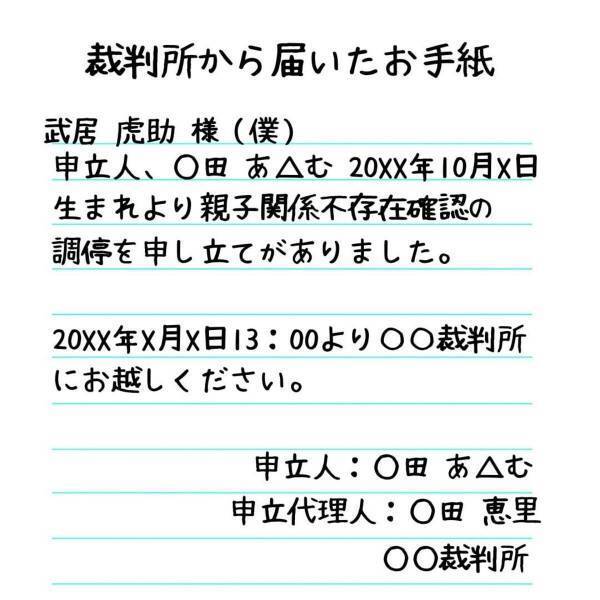 裁判所から届いたお手紙
武居 虎助 様（僕）
申立人、〇田 あ△む 20XX年10月X日
生まれより親子関係不存在確認の
調停を申し立てがありました。
20XX年X月X日13：00より〇〇裁判所
にお越しください。
申立人：〇田 あ△む
申立代理人：〇田 恵里
〇〇裁判所